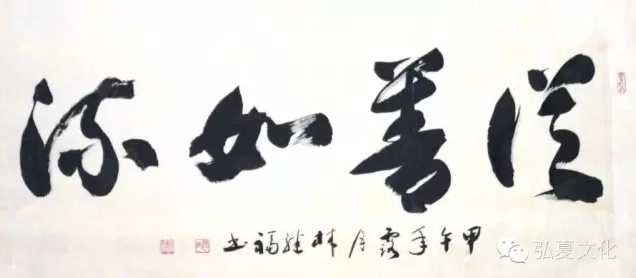 從善如流
甲午年露月林继福书
弘夏文化